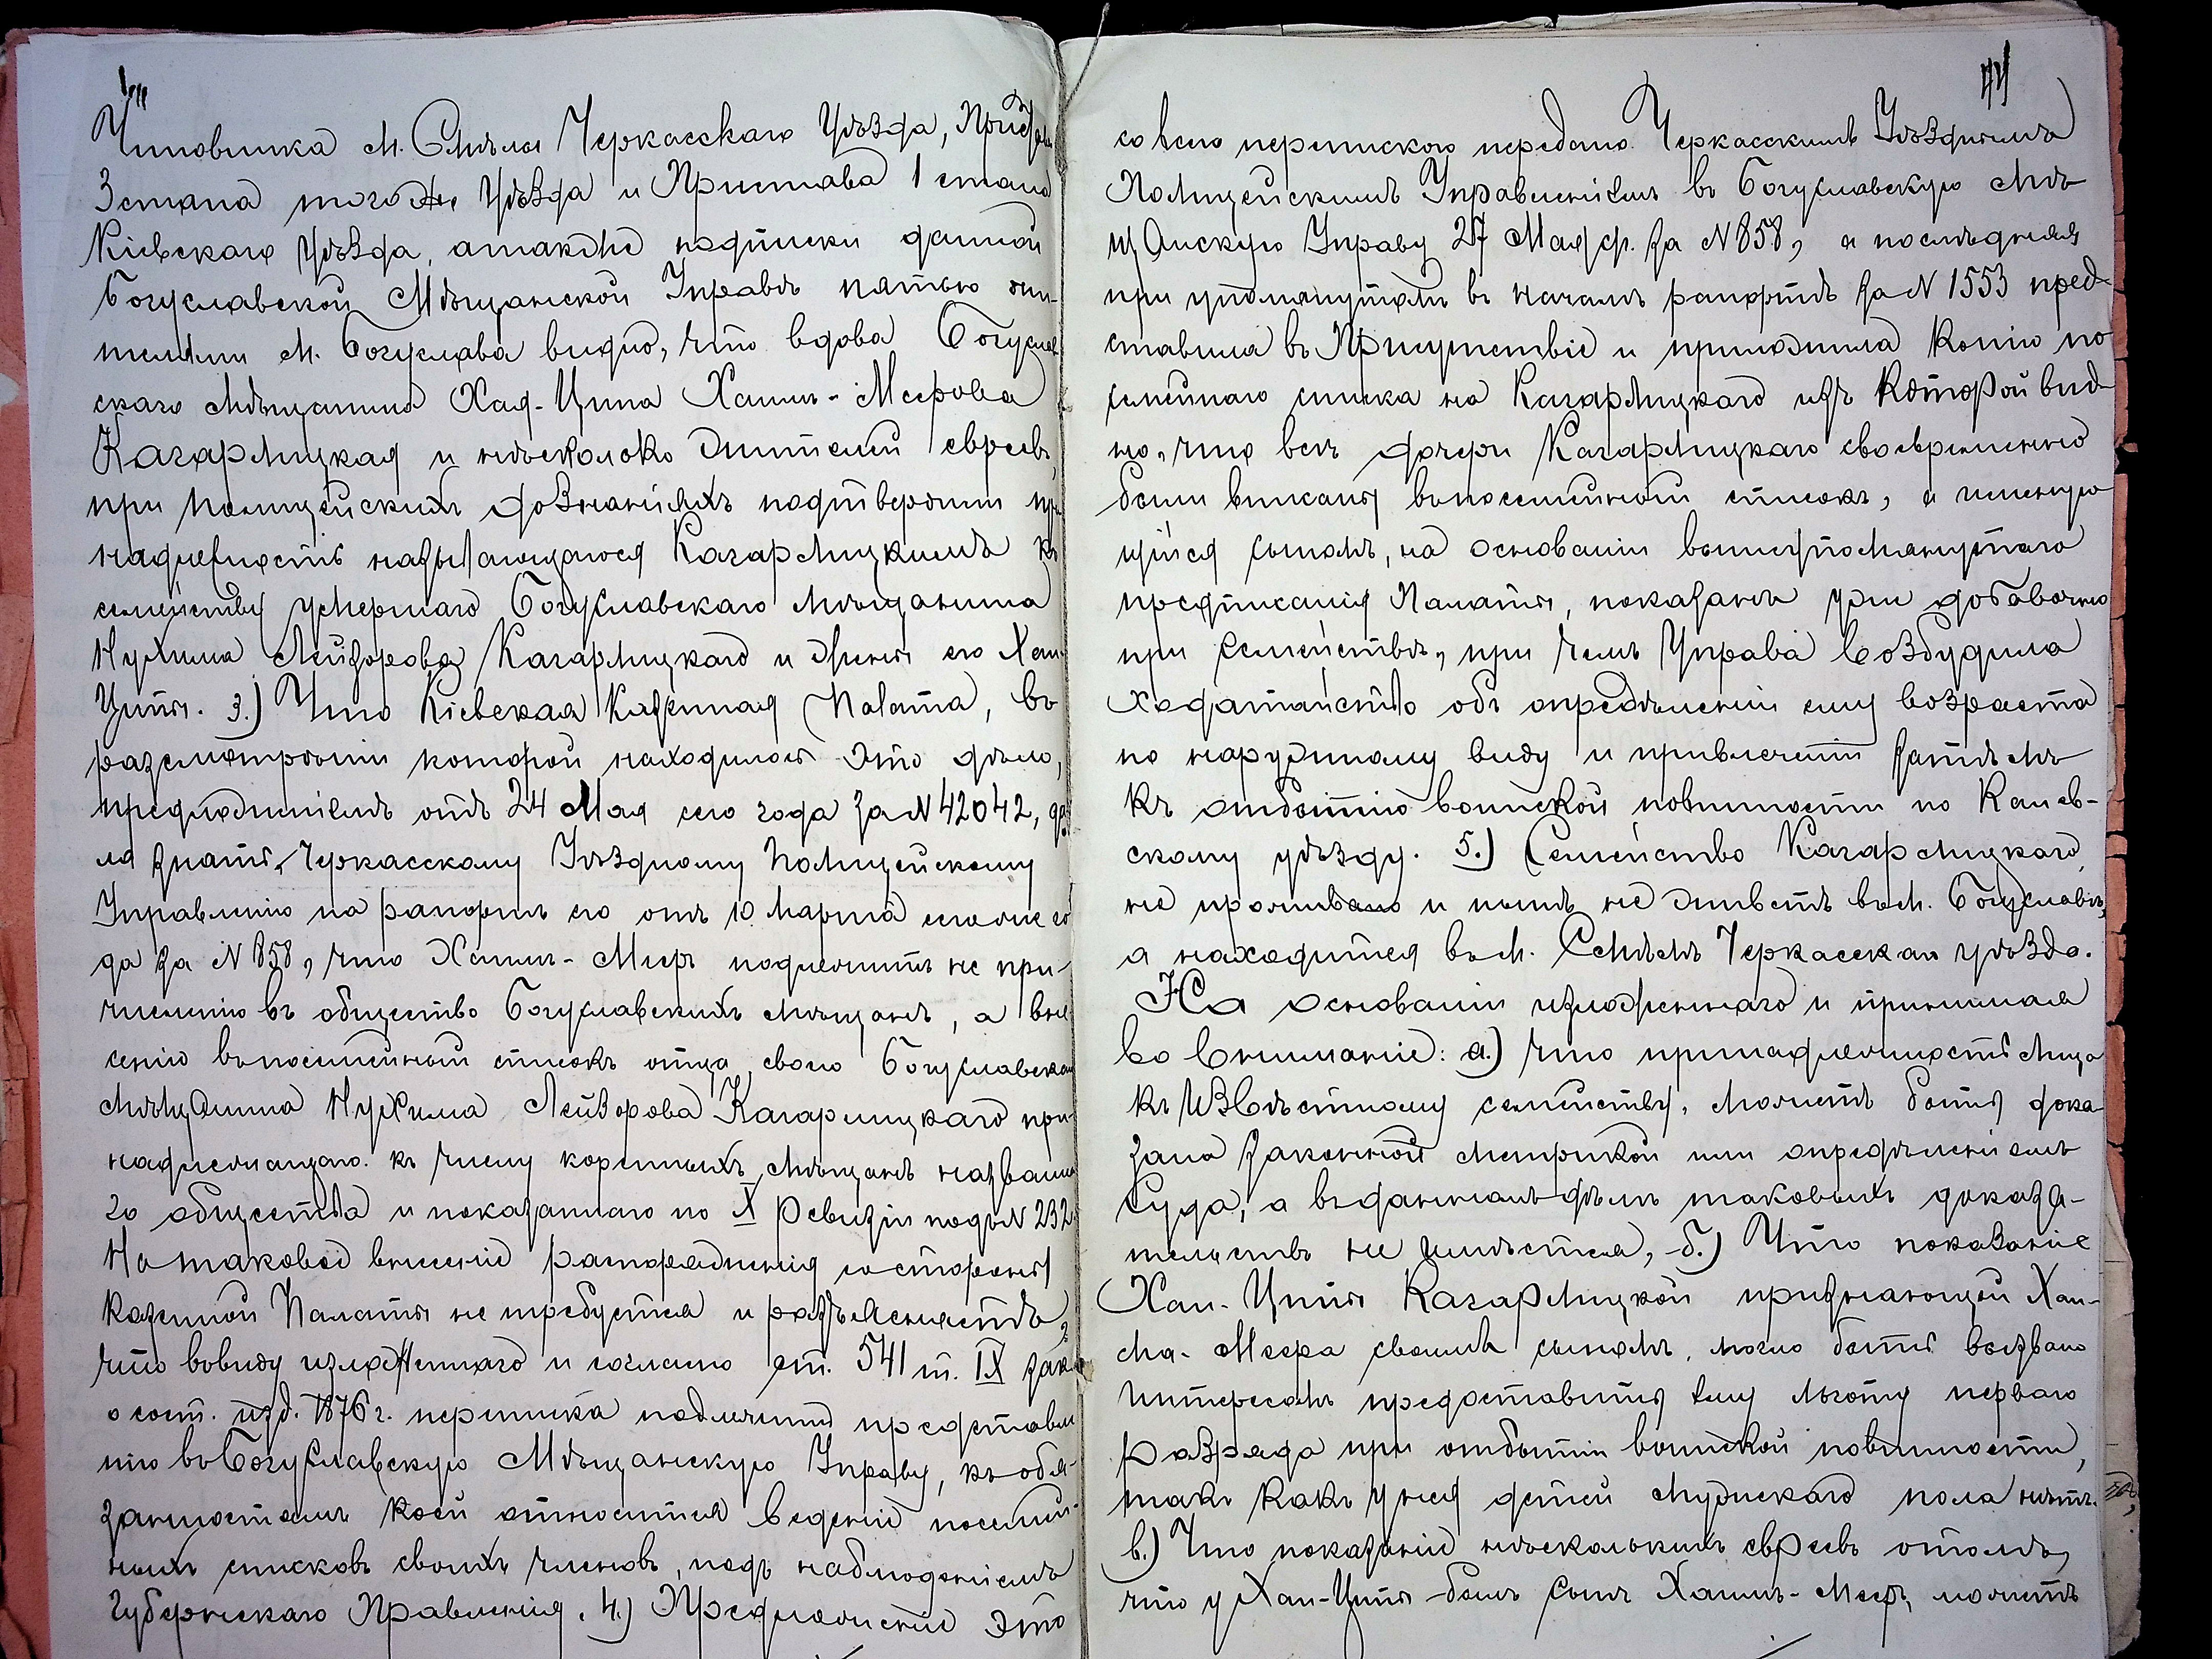 Чиновника м. Смѣлы Черкасскаго Уѣзда, Пристава
3 стана того же Уѣзда и Пристава 1 стана
Кіевскаго Уѣзда, а также подписки данной
Богуславской Мѣщанской Управѣ пятью жи-
телями м. Богуслава видно, что вдова Богуслав
скаго мѣщанина Хая-Ципа Хаимъ-Меерова
Кагарлицкая и нѣсколько жителей евреевъ,
при полицейскихъ дознаніяхъ подтвердили при
надлежность называющагося Кагарлицкимъ къ
семейству умершаго Богуславскаго мѣщанина
Нухима Лейзорова Кагарлицкаго и жены его Хаи
Ципы. 3.) Что Кіевская Казенная Палата, въ
разсмотрѣніи которой находилось это дѣло,
предложеніемъ отъ 24 Мая сего года за № 42042, да
ла знать Черкасскому Уѣздному Полицейскому
Управленію на рапортъ его отъ 10 Марта сего же го
да за № 858, что Хаимъ-Меер подлежитъ не при-
численію въ общество Богуславскихъ мѣщанъ, а вне
сенію въ посемейный списокъ отца своего Богуславскаго
мѣщанина Нухима Лейзорова Кагарлицкаго при
надлежащаго къ числу коренныхъ мѣщанъ названна
го общества и показаннаго по X ревизіи подъ № 232.
На таковое внесеніе распоряженія со стороны
Казенной Палаты не требуется и разъясняетъ,
что въ виду изложеннаго и согласно ст. 541 т. IX зак.
о сост. изд. 1876 г. переписка подлежитъ представле
нію въ Богуславскую Мѣщанскую Управу, къ обя-
занностямъ коей относится веденіе посемей-
ныхъ списковъ своихъ членовъ, подъ наблюденіемъ
Губернскаго Правленія. 4.) Предложеніе это
44
со всею перепискою передано Черкасскимъ Уѣзднымъ
Полицейскимъ Управленіемъ въ Богуславскую Мѣ
щанскую Управу 27 Мая с.г. за № 858, а послѣдняя
при упомянутомъ въ началѣ рапортѣ за № 1553 пред-
ставила въ Присутствіе и приложила копію по
семейнаго списка на Кагарлицкаго изъ которой вид-
но, что всѣ дочери Кагарлицкаго своевременно
были вписаны въ посемейный списокъ, а именую
щійся сыномъ, на основаніи вышеупомянутаго
предписанія Палаты, показанъ уже добавочно
при семействѣ, при чемъ Управа возбудила
ходатайство объ опредѣленіи ему возраста
по наружному виду и привлеченіи затѣмъ
къ отбытію воинской повинности по Канев-
скому уѣзду. 5.) Семейство Кагарлицкаго
не проживало и нынѣ не живетъ въ м. Богуславѣ,
а находится въ м. Смѣлѣ Черкасскаго уѣзда.
На основаніи изложеннаго и принимая
во вниманіе: а.) что принадлежность лица
къ извѣстному семейству, можетъ быть дока
зана законной метрикой или опредѣленіемъ
Суда, а въ данномъ дѣлѣ таковыхъ доказа-
тельствъ не имѣется, б.) Что показаніе
Хаи-Ципы Кагарлицкой признающей Хаи-
ма-Меера своимъ сыномъ, могло быть вызвано
интересомъ предоставить ему льготу перваго
разряда при отбытіи воинской повинности,
такъ какъ у нея дѣтей мужскаго пола нѣтъ.
в.) Что показаніе нѣсколькихъ евреевъ о томъ,
что у Хаи-Ципы былъ сынъ Хаимъ-Меер, можетъ